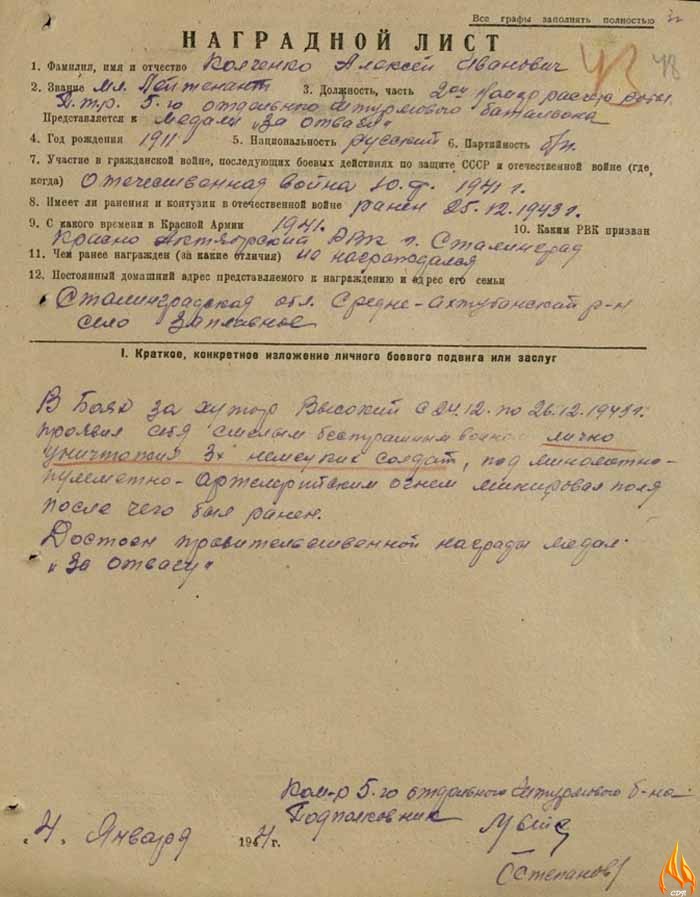 Все графы заполнять полностью
НАГРАДНОЙ ЛИСТ
48
1. Фамилия, имя и отчество Колченко Алексей Иванович
2. Звание Мл. Лейтенант 3. Должность, часть 2ой роты
П.т.р. 5-го отдельного Штурмового батальона
Представляется к медали „За отвагу"
4. Год рождения 1911 5. Национальность русский 6. Партийность б/п.
7. Участие в гражданской войне, последующих боевых действиях по защите СССР и отечественной войне (где,
когда) Отечественная война Ю.ф. 1941 г.
8. Имеет ли ранения и контузии в отечественной войне ранен 25.12.1943 г.
9. С какого времени в Красной Армии 1941. 10. Каким РВК призван
Красно Октяборский РВК г. Сталинград
11. Чем ранее награжден (за какие отличия) не награждался
12. Постоянный домашний адрес представляемого к награждению и адрес его семьи
Сталинградская обл. Средне-Ахтубанский р-н
село Заплавное
I. Краткое, конкретное изложение личного боевого подвига или заслуг
В Боях за хутор Высокий с 24.12. по 26.12.1943 г.
проявил себя смелым бесстрашным воином лично
уничтожил 3х немецких солдат, под минометно-
пулеметно-артелерийским огнем минировал поля
после чего был ранен.
Достоен правительственной награды медал.
„За отвагу"
Ком-р 5-го отдельного Штурмового б-на
Подполковник
„4" Января 1944 г.
(Степанов)
CDR